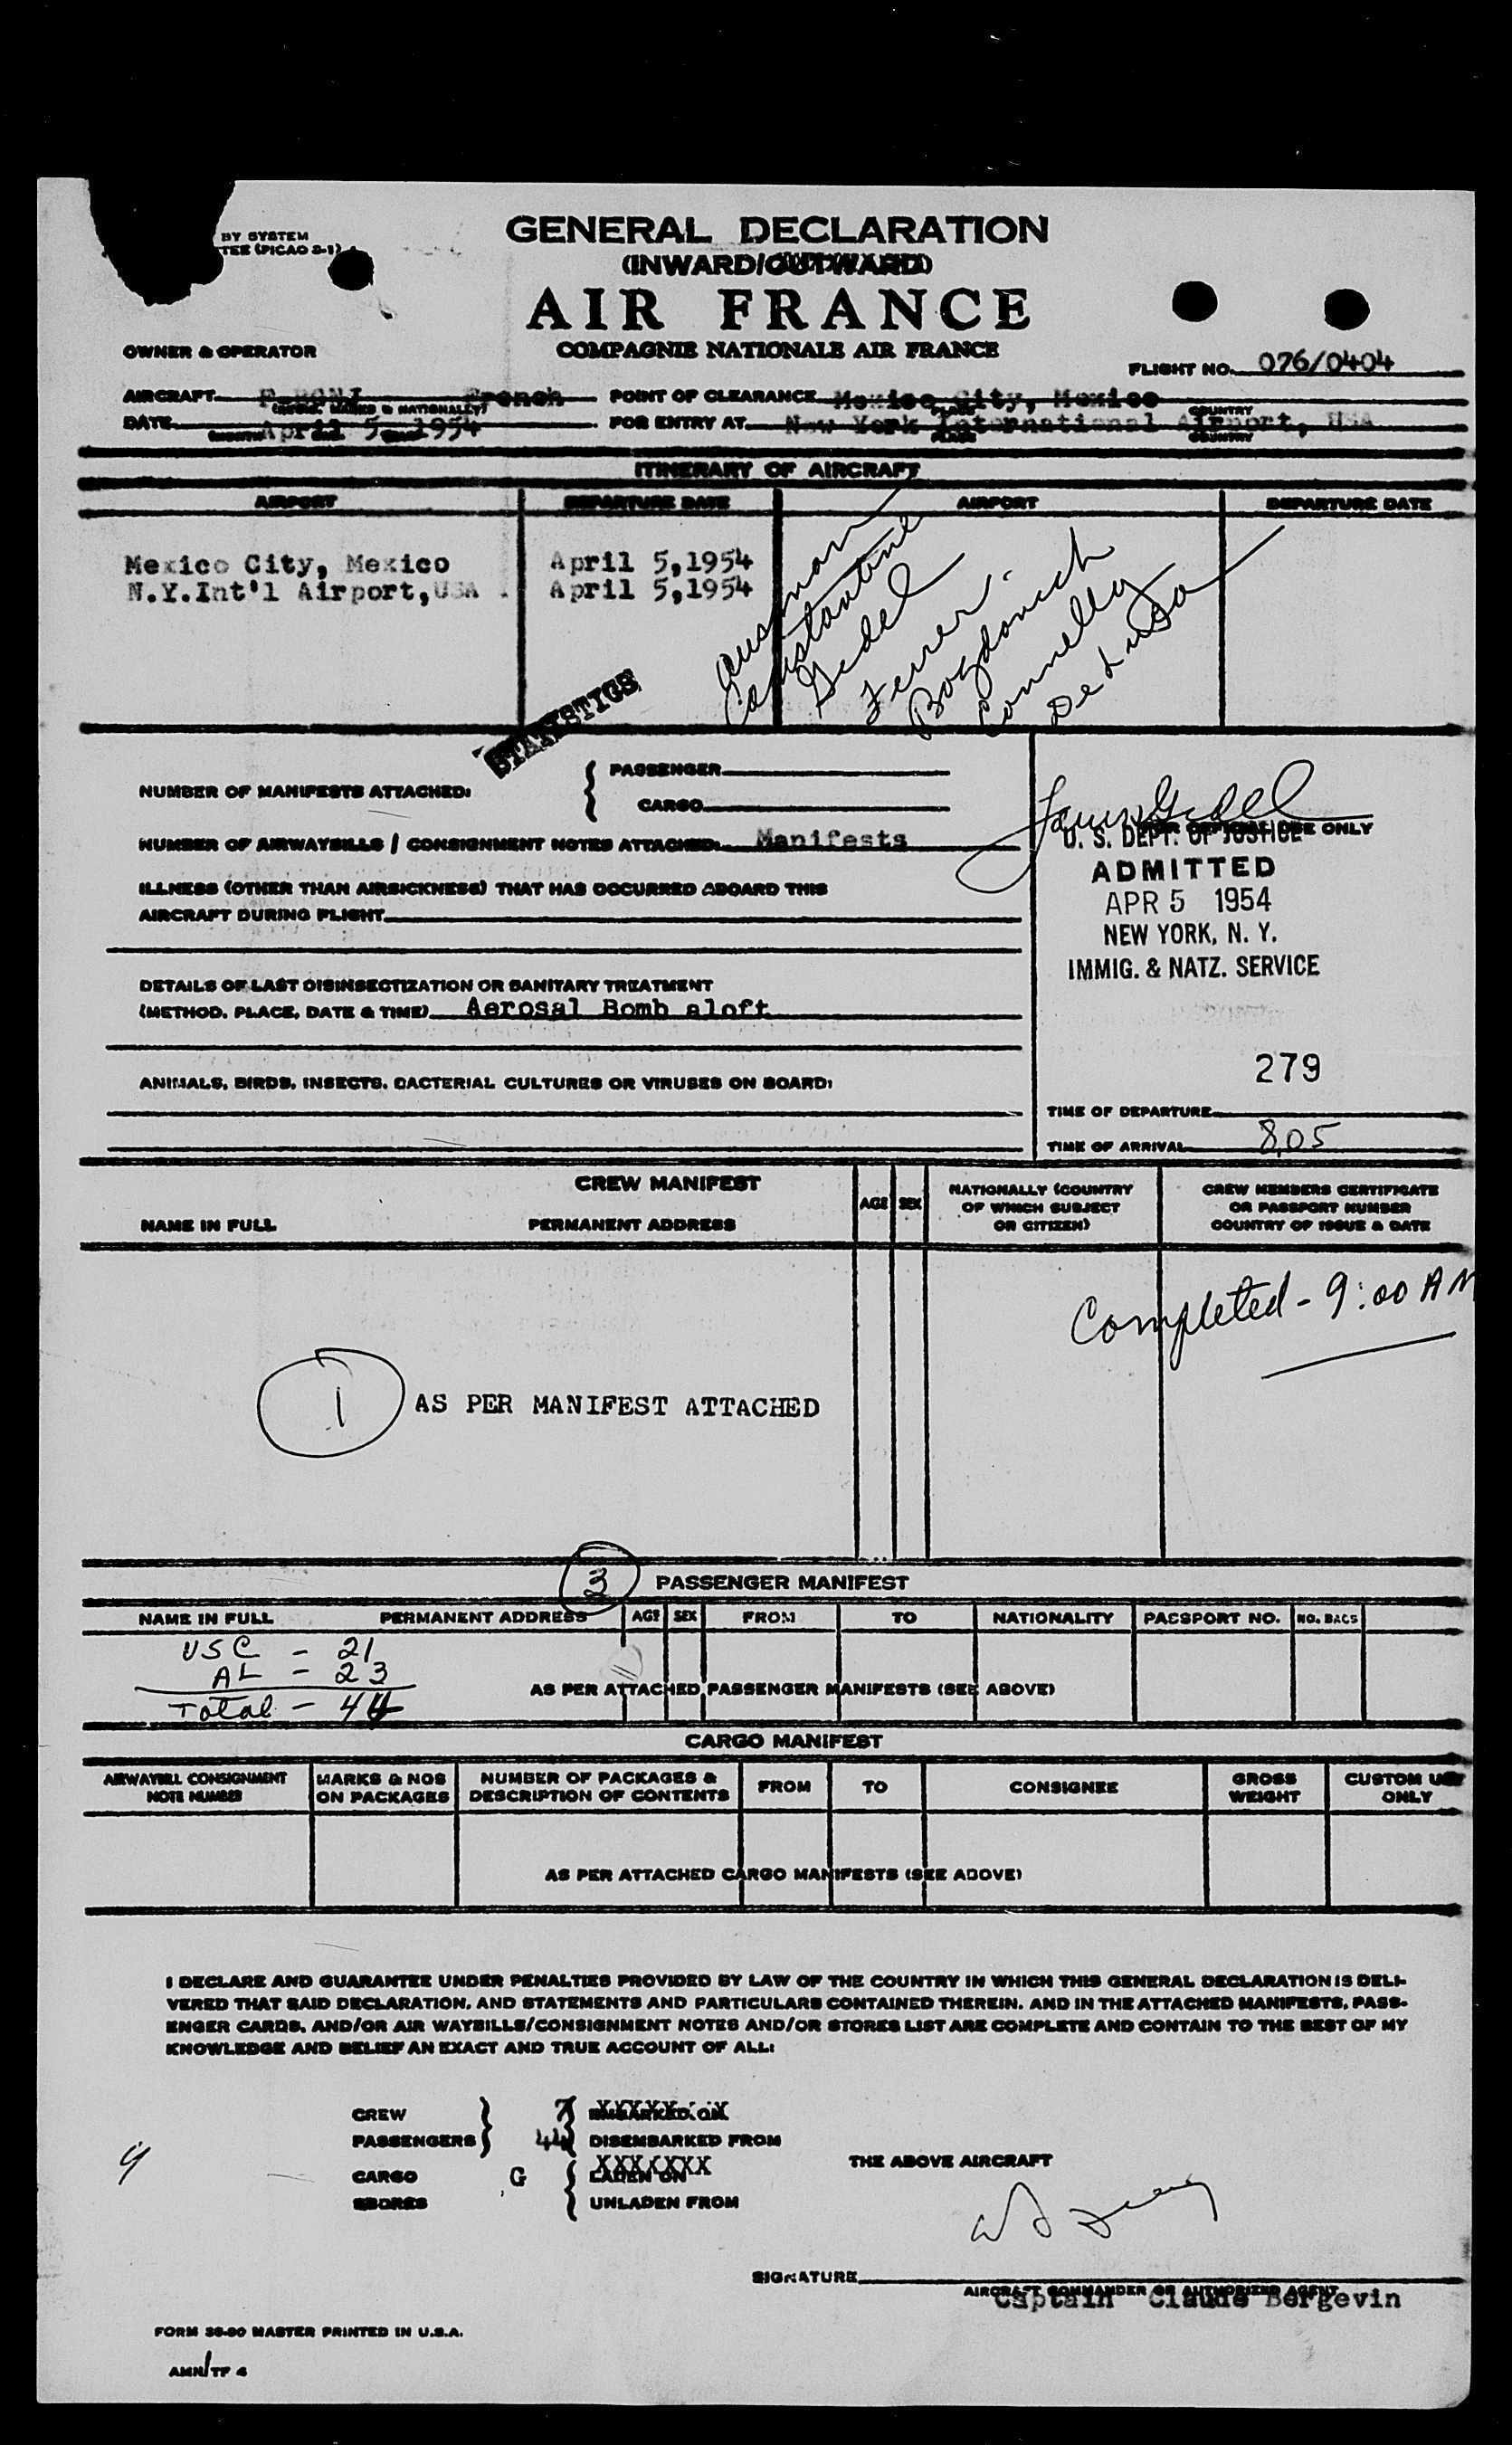 BY SYSTEM
TEE (PICAO 2-1)
GENERAL DECLARATION
(INWARD/OUTWARD)
AIR FRANCE
COMPAGNIE NATIONALE AIR FRANCE
OWNER & OPERATOR
FLIGHT NO. 076/0404
AIRCRAFT French POINT OF CLEARANCE Mexico City, Mexico
(REGIS. MARKS & NATIONALLY) PLACE COUNTRY
DATE April 5, 1954 FOR ENTRY AT New York International Airport, USA
PLACE COUNTRY
ITINERARY OF AIRCRAFT
AIRPORT DEPARTURE DATE AIRPORT DEPARTURE DATE
Mexico City, Mexico April 5,1954
N.Y.Int'l Airport,USA April 5,1954
Constantine
Gedel
Ferrer
Bogdanich
Connelly
STATISTICS
NUMBER OF MANIFESTS ATTACHED: PASSENGER
CARGO
NUMBER OF AIRWAYBILLS / CONSIGNMENT NOTES ATTACHED: Manifests
ILLNESS (OTHER THAN AIRSICKNESS) THAT HAS OCCURRED ABOARD THIS
AIRCRAFT DURING FLIGHT
DETAILS OF LAST DISINSECTIZATION OR SANITARY TREATMENT
(METHOD, PLACE, DATE & TIME) Aerosal Bomb aloft
ANIMALS, BIRDS, INSECTS, BACTERIAL CULTURES OR VIRUSES ON BOARD:
FOR OFFICIAL USE ONLY
U. S. DEPT. OF JUSTICE
ADMITTED
APR 5 1954
NEW YORK, N. Y.
IMMIG. & NATZ. SERVICE
279
TIME OF DEPARTURE
TIME OF ARRIVAL 8,05
CREW MANIFEST
NAME IN FULL PERMANENT ADDRESS AGE SEX NATIONALLY (COUNTRY OF WHICH SUBJECT OR CITIZEN) CREW MEMBERS CERTIFICATE OR PASSPORT NUMBER COUNTRY OF ISSUE & DATE
Completed - 9:00 AM
1 AS PER MANIFEST ATTACHED
3 PASSENGER MANIFEST
NAME IN FULL PERMANENT ADDRESS AGE SEX FROM TO NATIONALITY PASSPORT NO. NO. BAGS
USC - 21
AL - 23
Total - 44
AS PER ATTACHED PASSENGER MANIFESTS (SEE ABOVE)
CARGO MANIFEST
AIRWAYBILL CONSIGNMENT NOTE NUMBER MARKS & NOS ON PACKAGES NUMBER OF PACKAGES & DESCRIPTION OF CONTENTS FROM TO CONSIGNEE GROSS WEIGHT CUSTOM USE ONLY
AS PER ATTACHED CARGO MANIFESTS (SEE ABOVE)
I DECLARE AND GUARANTEE UNDER PENALTIES PROVIDED BY LAW OF THE COUNTRY IN WHICH THIS GENERAL DECLARATION IS DELI-
VERED THAT SAID DECLARATION, AND STATEMENTS AND PARTICULARS CONTAINED THEREIN, AND IN THE ATTACHED MANIFESTS, PASS-
ENGER CARDS, AND/OR AIR WAYBILLS/CONSIGNMENT NOTES AND/OR STORES LIST ARE COMPLETE AND CONTAIN TO THE BEST OF MY
KNOWLEDGE AND BELIEF AN EXACT AND TRUE ACCOUNT OF ALL:
CREW 7 EMBARKED ON
PASSENGERS 44 DISEMBARKED FROM
THE ABOVE AIRCRAFT
CARGO G LADEN ON
STORES UNLADEN FROM
SIGNATURE
AIRCRAFT COMMANDER OR AUTHORIZED AGENT
Captain Claude Bergevin
FORM 36-90 MASTER PRINTED IN U.S.A.
AMN/TF 4